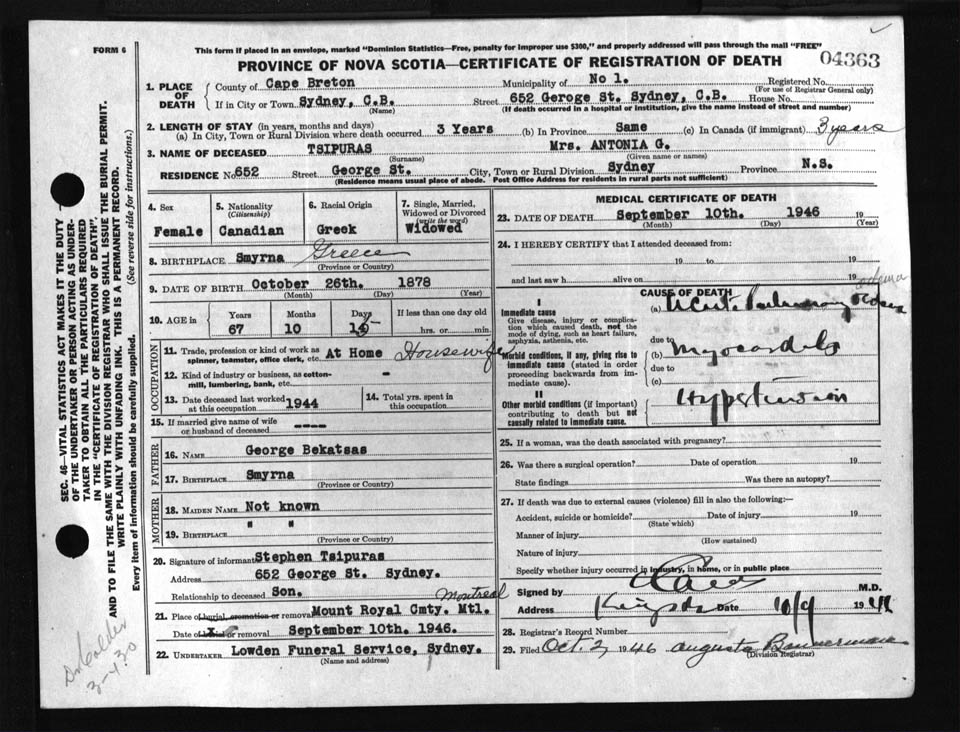 FORM 6
This form if placed in an envelope, marked "Dominion Statistics—Free, penalty for improper use $300," and properly addressed will pass through the mail "FREE"
PROVINCE OF NOVA SCOTIA—CERTIFICATE OF REGISTRATION OF DEATH
04363
SEC. 46—VITAL STATISTICS ACT MAKES IT THE DUTY
OF THE UNDERTAKER OR PERSON ACTING AS UNDER-
TAKER TO OBTAIN ALL THE PARTICULARS REQUIRED
IN THE "CERTIFICATE OF REGISTRATION OF DEATH".
AND TO FILE THE SAME WITH THE DIVISION REGISTRAR WHO SHALL ISSUE THE BURIAL PERMIT.
WRITE PLAINLY WITH UNFADING INK. THIS IS A PERMANENT RECORD.
Every item of information should be carefully supplied. (See reverse side for instructions.)
1. PLACE OF DEATH
County of Cape Breton Municipality of No 1. Registered No.
(For use of Registrar General only)
If in City or Town Sydney, C.B. Street 652 Geroge St. Sydney, C.B. House No.
(Name) (If death occurred in a hospital or institution, give the name instead of street and number)
2. LENGTH OF STAY (in years, months and days)
(a) In City, Town or Rural Division where death occurred 3 Years (b) In Province Same (c) In Canada (if immigrant) 3 years
3. NAME OF DECEASED TSIPURAS Mrs. ANTONIA G.
(Surname) (Given name or names)
RESIDENCE No 652 Street George St. City, Town or Rural Division Sydney Province N.S.
(Residence means usual place of abode. Post Office Address for residents in rural parts not sufficient)
4. Sex 5. Nationality (Citizenship) 6. Racial Origin 7. Single, Married, Widowed or Divorced (write the word)
Female Canadian Greek Widowed
8. BIRTHPLACE Smyrna Greece
(Province or Country)
9. DATE OF BIRTH October 26th. 1878
(Month) (Day) (Year)
10. AGE in Years Months Days If less than one day old
67 10 hrs. or min.
OCCUPATION
11. Trade, profession or kind of work as spinner, teamster, office clerk, etc. At Home Housewife
12. Kind of industry or business, as cotton-mill, lumbering, bank, etc. -
13. Date deceased last worked at this occupation 1944
14. Total yrs. spent in this occupation
15. If married give name of wife or husband of deceased ----
FATHER
16. NAME George Bekatsas
17. BIRTHPLACE Smyrna
(Province or Country)
MOTHER
18. MAIDEN NAME Not known
19. BIRTHPLACE " "
(Province or Country)
20. Signature of informant Stephen Tsipuras
Address 652 George St. Sydney.
Relationship to deceased Son.
Montreal
21. Place of burial, cremation or removal Mount Royal Cmty. Mtl.
Date of burial or removal September 10th. 1946.
22. UNDERTAKER Lowden Funeral Service, Sydney.
(Name and address)
MEDICAL CERTIFICATE OF DEATH
23. DATE OF DEATH September 10th. 1946 19
(Month) (Day) (Year)
24. I HEREBY CERTIFY that I attended deceased from:
19 to 19
and last saw h alive on 19
CAUSE OF DEATH
edema
I
Immediate cause
Give disease, injury or complication which caused death, not the mode of dying, such as heart failure, asphyxia, asthenia, etc.
(a) Acute Pulmonary Edema
due to
Morbid conditions, if any, giving rise to immediate cause (stated in order proceeding backwards from immediate cause).
(b) Myocarditis
due to
(c)
II
Other morbid conditions (if important) contributing to death but not causally related to immediate cause.
Hypertension
25. If a woman, was the death associated with pregnancy?
26. Was there a surgical operation? Date of operation 19
State findings Was there an autopsy?
27. If death was due to external causes (violence) fill in also the following:—
Accident, suicide or homicide? Date of injury 19
(State which)
Manner of injury
(How sustained)
Nature of injury
Specify whether injury occurred in industry, in home, or in public place
Signed by M.D.
Address Date 10/9 1946
28. Registrar's Record Number
29. Filed Oct. 2 1946 Augusta Bannerman
(Division Registrar)
Dr Calder
3-430